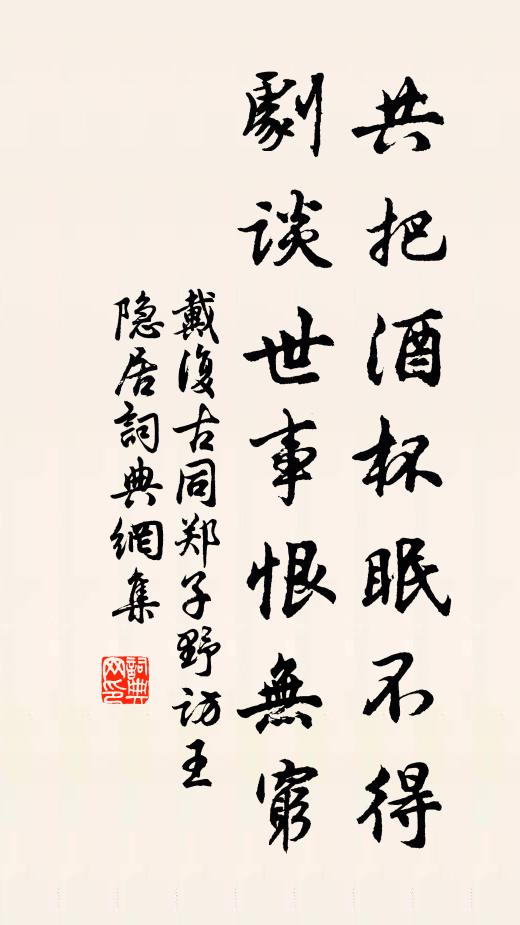 共把酒杯眠不得
劇谈世事恨無窮
戴復古同郑子野访王
隐居詞典網集
詞典
网印